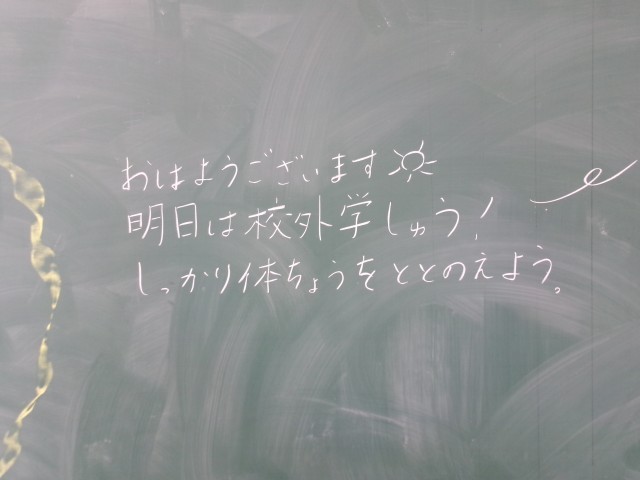 おはようございます
明日は校外学しゅう!
しっかり体ちょうをととのえよう。